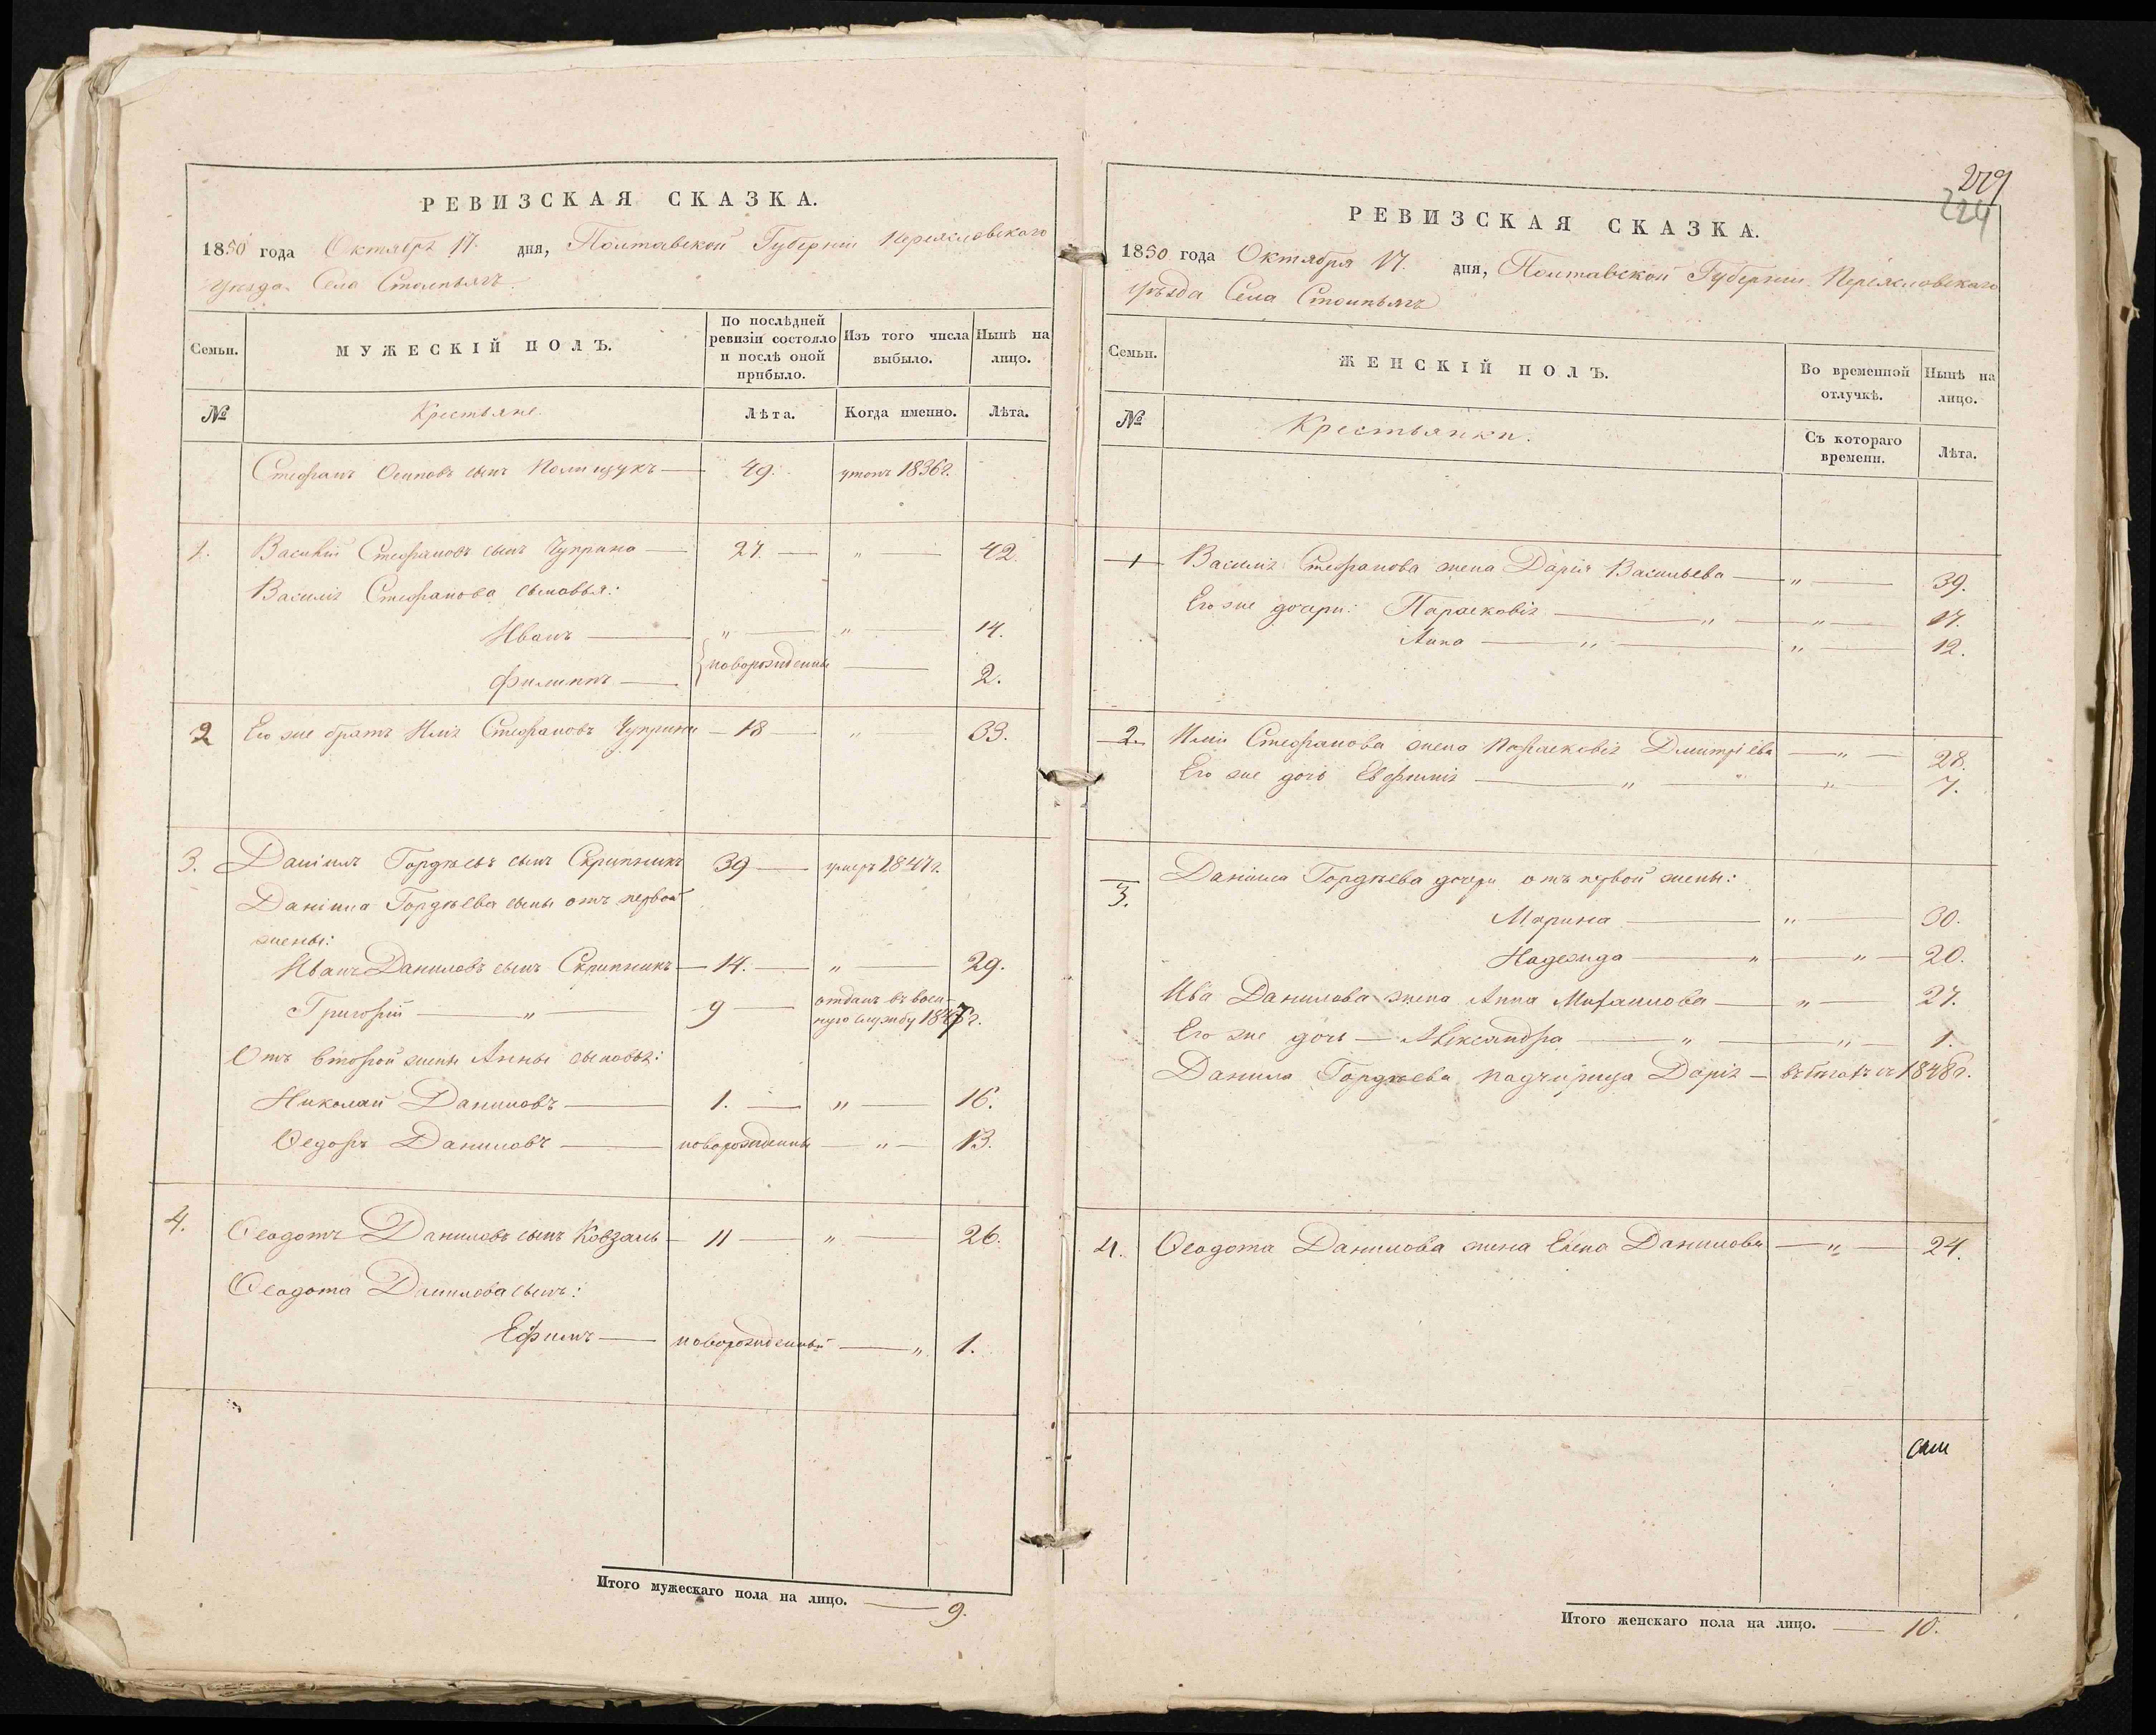 РЕВИЗСКАЯ СКАЗКА.
1850 года Октября 17. дня, Полтавской Губернии Переяславского
уѣзда Села Столпьягъ
Семьи. МУЖЕСКІЙ ПОЛЪ. По послѣдней ревизіи состояло и послѣ оной прибыло. Изъ того числа выбыло. Нынѣ на лицо.
№ Крестьяне. Лѣта. Когда именно. Лѣта.
Стефанъ Осиповъ сынъ Полищукъ — 49. 1836г.
1. Василій Стефановъ сынъ Чуприна — 27. — „ — 42.
Василія Стефанова сыновья:
Иванъ — „ — „ — 14.
новорожденны
Филиппъ — 2.
2 Его же братъ Илія Стефановъ Чуприна — 18 — „ 33.
3. Даніилъ Гордѣевъ сынъ Скрипникъ 39 — умеръ 1847г.
Даніила Гордѣева сыны отъ первой
жены:
Иванъ Даниловъ сынъ Скрипникъ — 14. — „ — 29.
Григорій — „ — 9 — отданъ въ воен-
ную службу 1847г.
Отъ второй жены Анны сыновья:
Николай Даниловъ — 1. — „ — 16.
Ѳедоръ Даниловъ — новорожденны — „ — 13.
4. Ѳеодотъ Даниловъ сынъ Ковзаль — 11 — „ — 26.
Ѳеодота Данилова сынъ:
Ефимъ — новорожденный — „ 1.
Итого мужескаго пола на лицо. — 9.
224
РЕВИЗСКАЯ СКАЗКА.
1850 года Октября 17. дня, Полтавской Губерніи Переяславского
уѣзда Села Столпьягъ
Семьи. ЖЕНСКІЙ ПОЛЪ. Во временной отлучкѣ. Нынѣ на лицо.
№ Крестьянки. Съ котораго времени. Лѣта.
1 Василія Стефанова жена Дарія Васильева — „ — 39.
Его же дочери: Параскевія — „ — „ — 17.
Анна — „ — „ — 12.
2. Иліи Стефанова жена Параскевія Дмитріева — „ — 28.
Его же дочь Евфимія — „ — „ — 7.
3. Даніила Гордѣева дочери отъ первой жены:
Марина — „ — 30.
Надежда — „ — „ — 20.
Ива Данилова жена Анна Михайлова — „ — 27.
Его же дочь — Александра — „ — „ — 1.
Данила Гордѣева падчерица Дарія — въ бѣгахъ съ 1848г.
4. Ѳеодота Данилова жена Елена Данилова — „ — 24.
Итого женскаго пола на лицо. — 10.